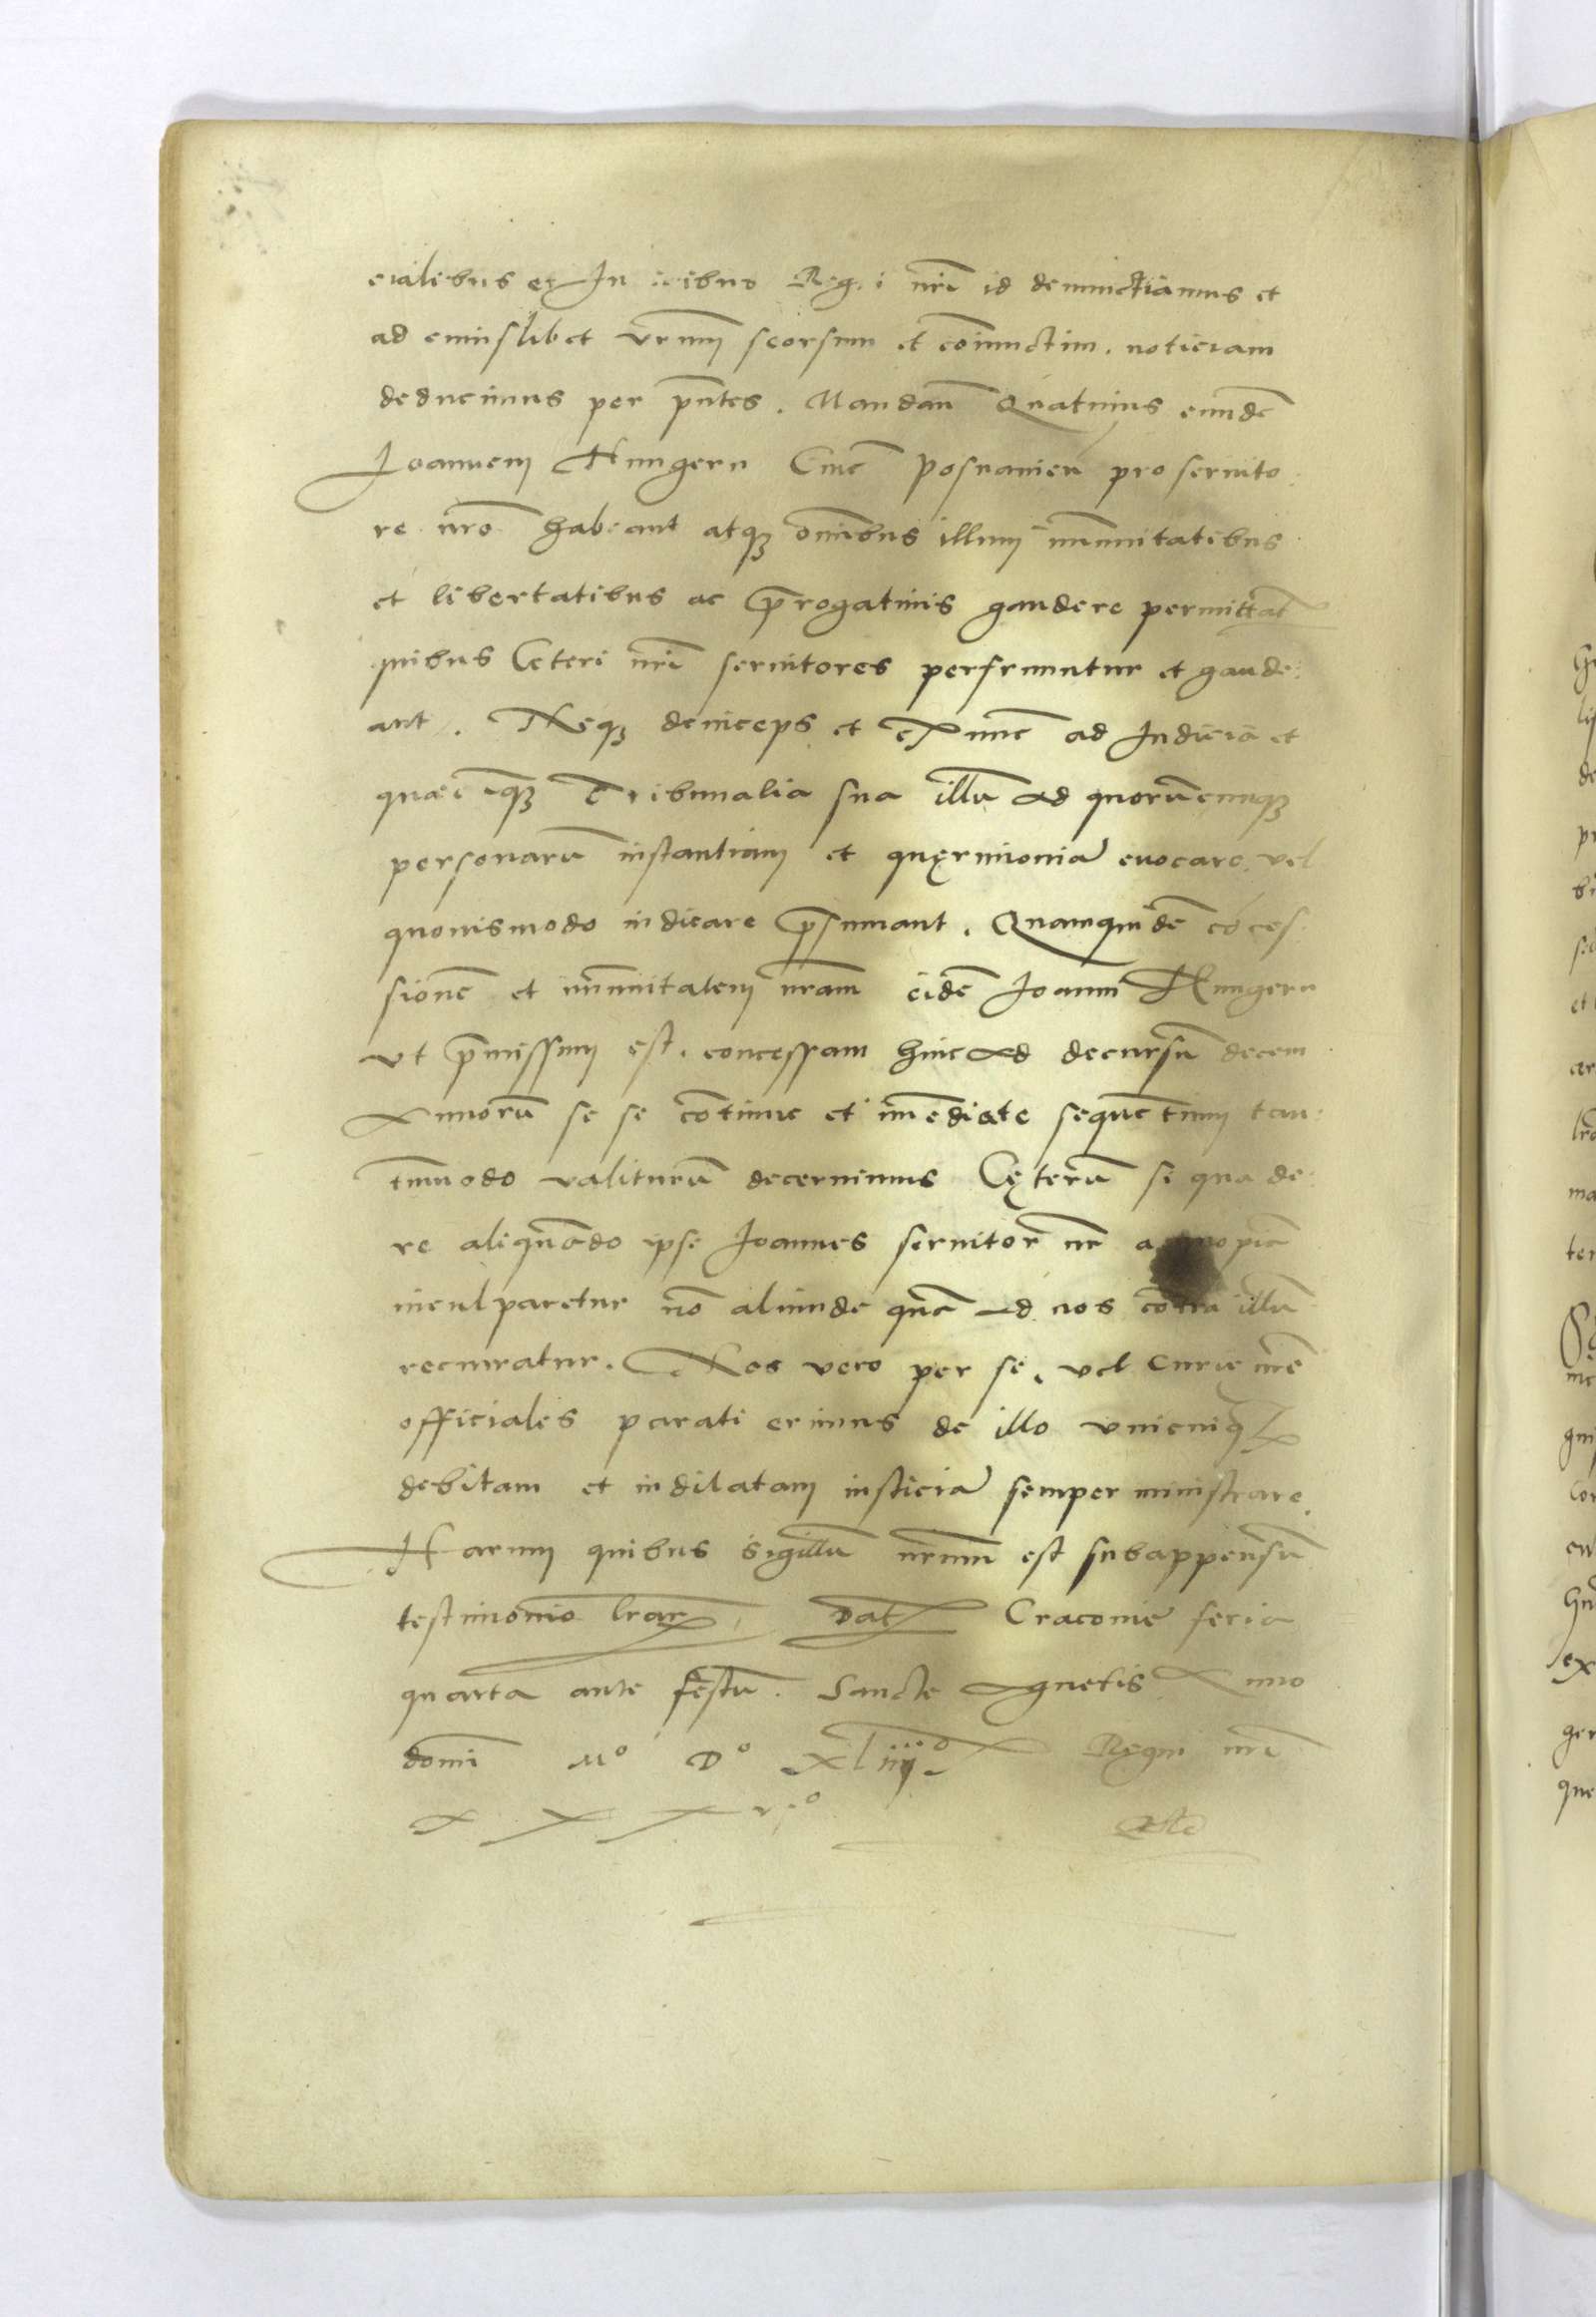 cialibus et Iudicibus Regni nr̄i id denunctiamus et
ad cuiuslibet vr̄um seorsum et cōiunctim. noticiam
deducimus per pn̄tes. Mandan̄ Quatinus eundē
Joannem Hungern Ciuē posnanien̄ pro seruito:
re nr̄o habeant atqꝫ om̄ibus illum im̄unitatibus
et libertatibus ac p̄rogatiuis gaudere permittāt
quibus Ceteri nr̄i seruitores perfruuntur et gaude:
ant. Neqꝫ deinceps et ex nunc ad Iudicia et
quæcūqꝫ Tribunalia sua illū ad quorūcunqꝫ
personarū instantiam et quęrimoniā euocare, vel
quouismodo iudicare p̄sumant. Quamquidē cōces:
sionē et im̄unitatem nr̄am eidē Joanni Hungern
vt p̄missum est. concessam hinc ad decursū decem
Annorū se se cōtinue et im̄ediate sequētium tan:
tum̄odo valiturū decernimus Cęterū si qua de:
re aliquādo ipse Joannes seruitor nr̄
inculparetur nō aliunde quā ad nos contra illū
recurratur. Nos vero per se, vel Curie nr̄e
officiales parati erimus de illo vnicuiqꝫ
debitam et indilatam iusticiā semper ministrare.
Harum quibus sigillū nr̄um est subappensū
testimonio lrar̄ Dat̄ Cracouie feria
quarta ante festū. Sancte Agnetis Anno
domī Mº Dº xliiijº Regni nr̄i
xxxviº